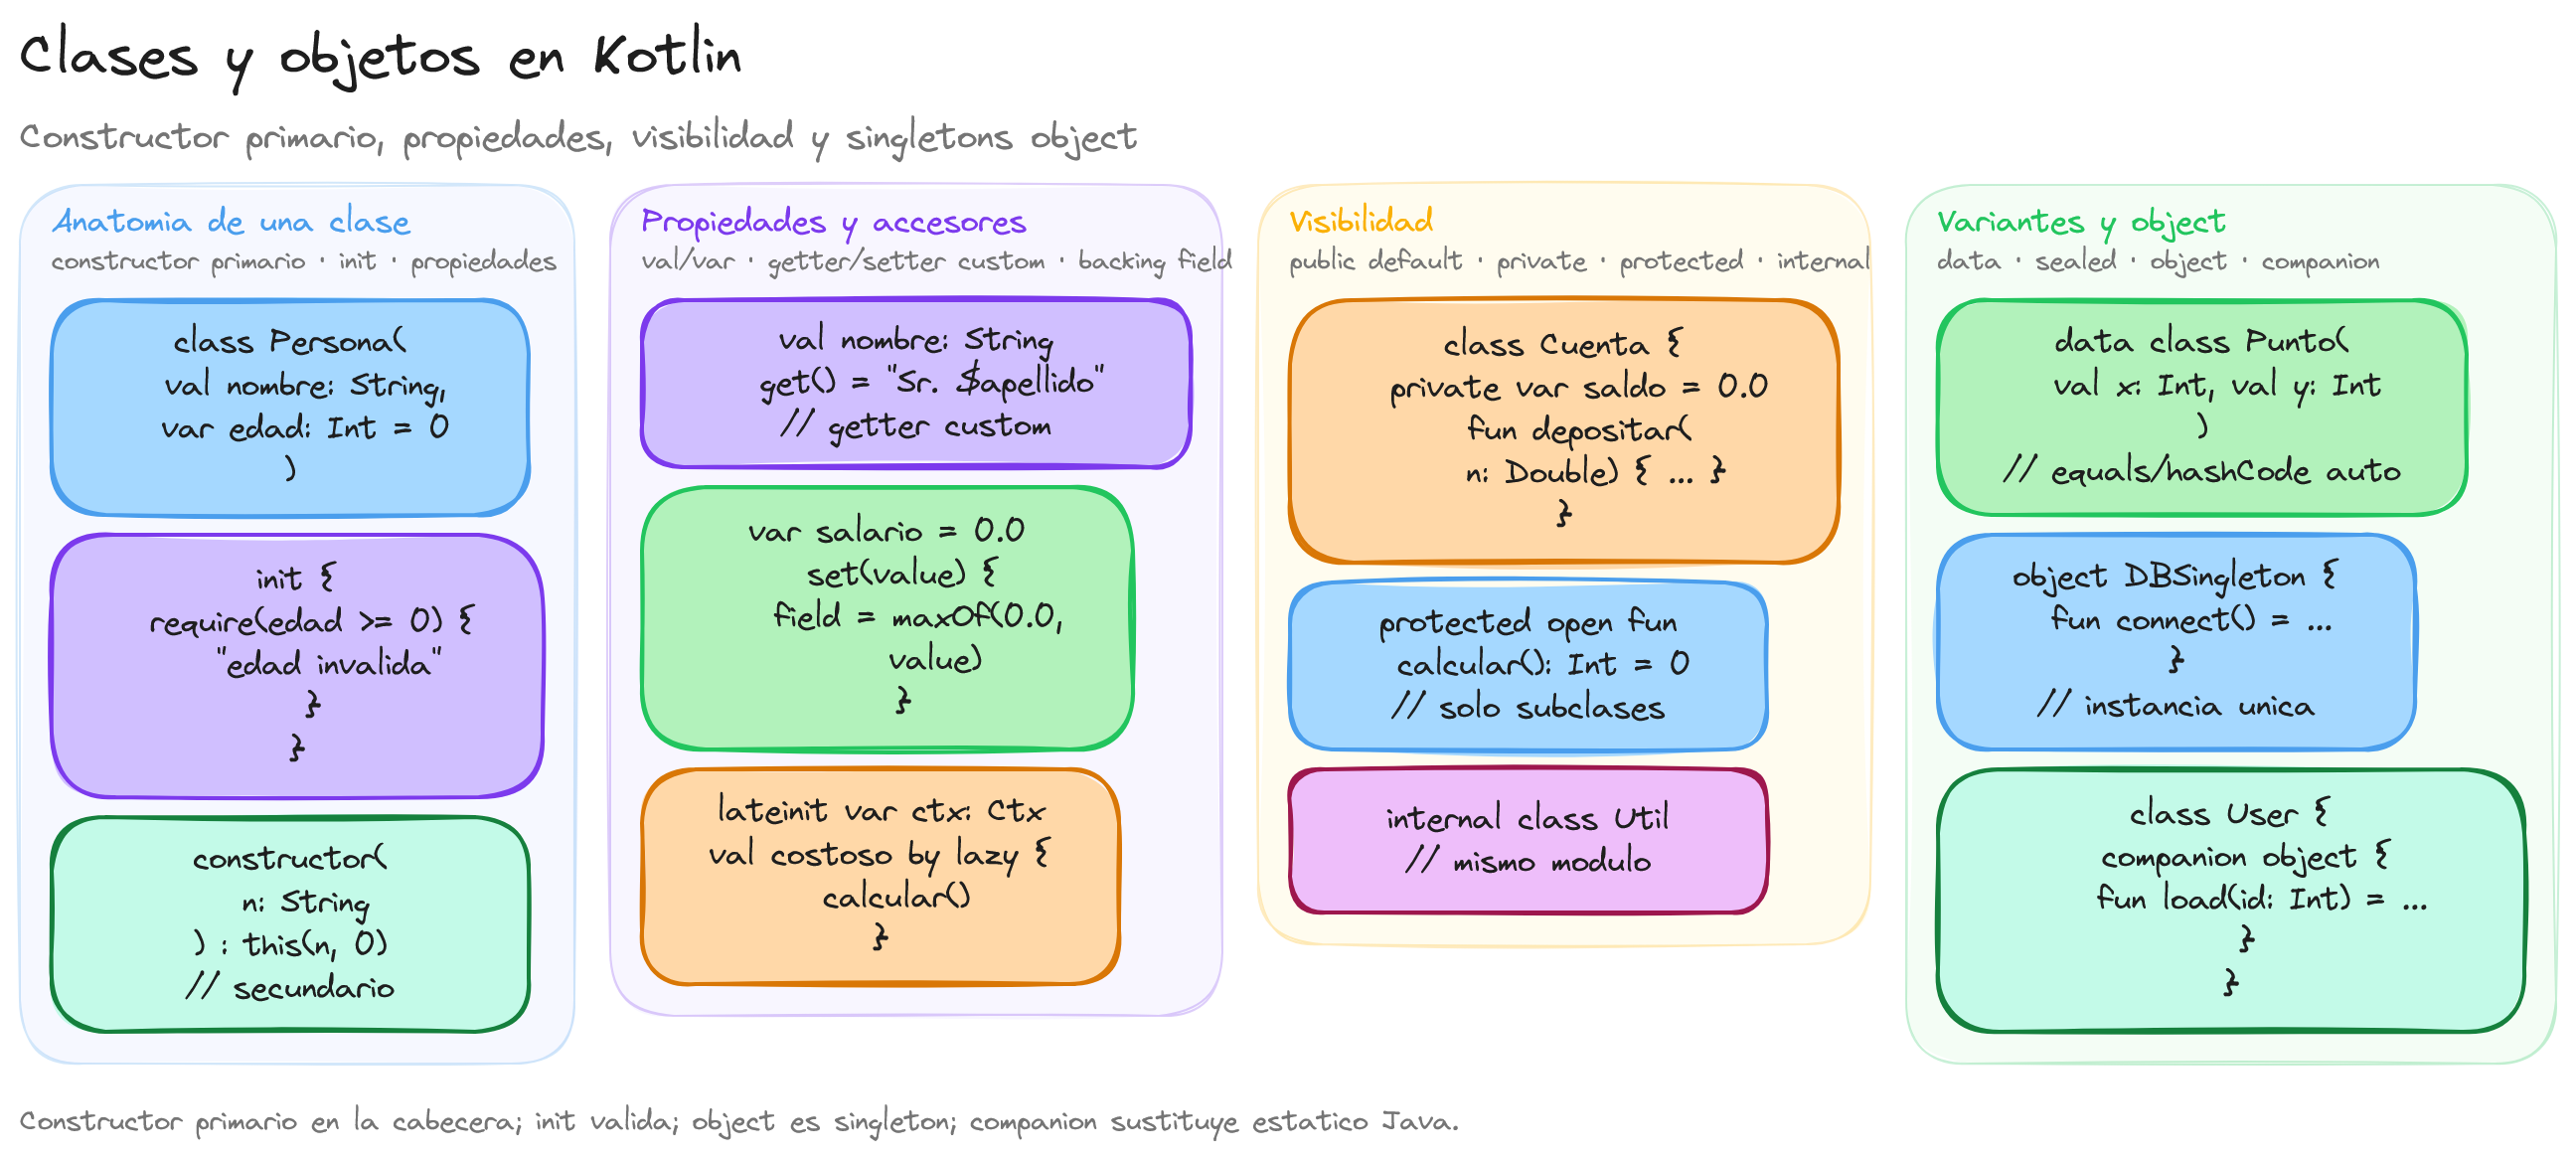 Clases y objetos en Kotlin
Constructor primario, propiedades, visibilidad y singletons object
Anatomia de una clase
constructor primario · init · propiedades
class Persona(
val nombre: String,
var edad: Int = 0
)
init {
require(edad >= 0) {
"edad invalida"
}
}
constructor(
n: String
) : this(n, 0)
// secundario
Propiedades y accesores
val/var · getter/setter custom · backing field
val nombre: String
get() = "Sr. $apellido"
// getter custom
var salario = 0.0
set(value) {
field = maxOf(0.0,
value)
}
lateinit var ctx: Ctx
val costoso by lazy {
calcular()
}
Visibilidad
public default · private · protected · internal
class Cuenta {
private var saldo = 0.0
fun depositar(
n: Double) { ... }
}
protected open fun
calcular(): Int = 0
// solo subclases
internal class Util
// mismo modulo
Variantes y object
data · sealed · object · companion
data class Punto(
val x: Int, val y: Int
)
// equals/hashCode auto
object DBSingleton {
fun connect() = ...
}
// instancia unica
class User {
companion object {
fun load(id: Int) = ...
}
}
Constructor primario en la cabecera; init valida; object es singleton; companion sustituye estatico Java.